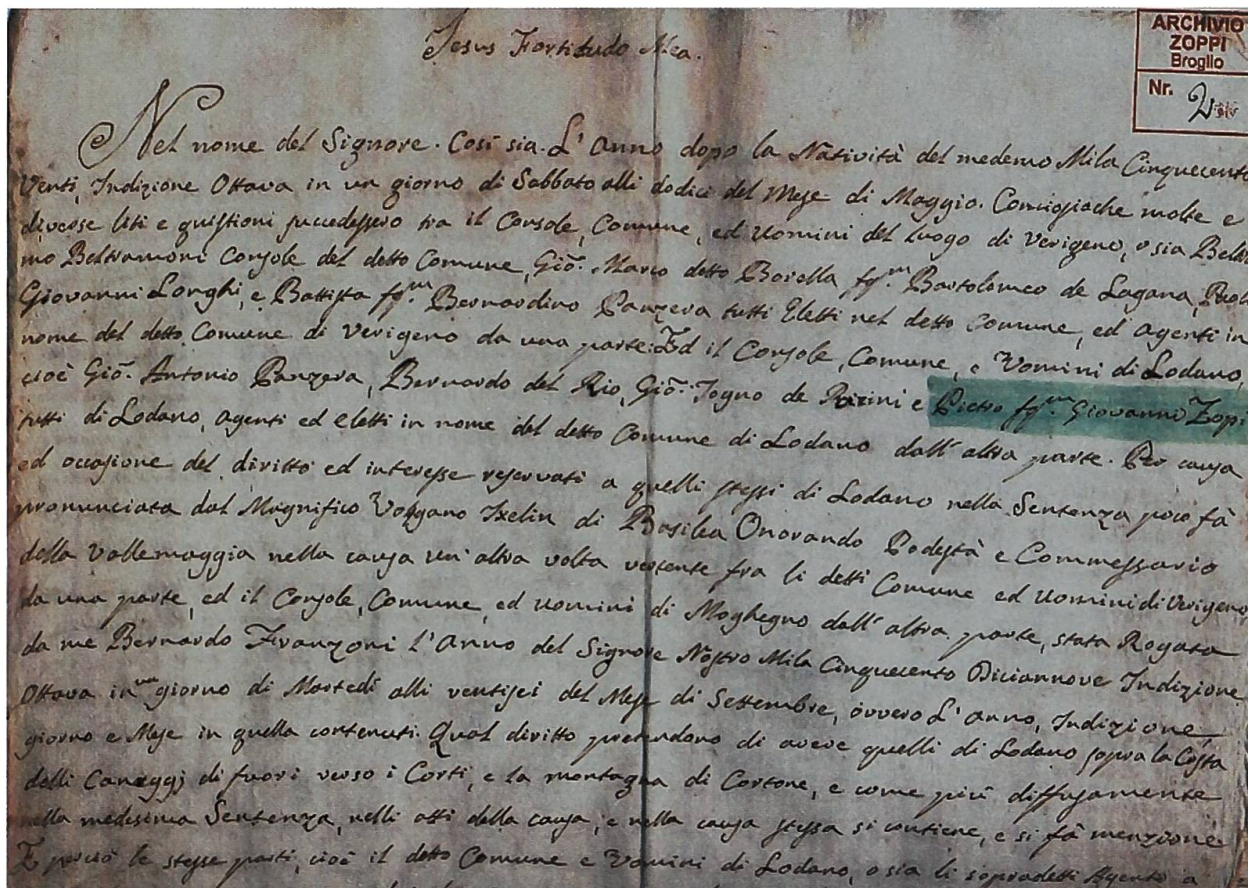 Jesus Fortitudo Mea.
ARCHIVIO
ZOPPI
Broglio
Nr. 2
Nel nome del Signore. Così sia. L'Anno dopo la Natività del medemo Mila Cinquecento
Venti, Indizione Ottava in un giorno di Sabbato alli dodici del Mese di Maggio. Consiosiache molte e
diverse liti e quistioni succedessero tra il Console, Comune, ed Uomini del luogo di Verigeno, o sia
mo Beltramoni Console del detto Comune, Gio. Marco detto Borella fq.m Bartolomeo de Lagana,
Giovanni Longhi, e Battista fq.m Bernardino Panzera tutti Eletti nel detto Comune, ed agenti in
nome del detto Comune di Verigeno da una parte: Ed il Console, Comune, e Uomini di Lodano,
cioè Gio. Antonio Panzera, Bernardo del Rio, Gio. Togno de e Pietro fq.m Giovanni Zopi
tutti di Lodano, agenti ed eletti in nome del detto Comune di Lodano dall'altra parte. Per causa
ed occasione del diritto ed interesse reservati a quelli stessi di Lodano nella Sentenza poco fà
pronunciata dal Magnifico Volgano Iselin di Basilea Onorando Podestà e Commessario
della Vallemaggia nella causa un'altra volta vertente fra li detti Comune ed Uomini di Verigeno
da una parte, ed il Console, Comune, ed Uomini di Moghegno dall'altra parte, stata Rogata
da me Bernardo Franzoni l'Anno del Signore Nostro Mila Cinquecento Diciannove Indizione
Ottava in un giorno di Martedì alli ventisei del Mese di Settembre, ovvero L'anno, Indizione,
giorno e Mese in quella contenuti. Qual diritto pretendano di avere quelli di Lodano sopra la Costa
delli Caneggj di fuori verso i Corti, e la montagna di Cortone, e come più diffusamente
nella medesima Sentenza, nelli atti della causa, e nella causa stessa si contiene, e si fà menzione
E perciò le stesse parti, cioè il detto Comune e Uomini di Lodano, o sia li sopradetti Agenti a